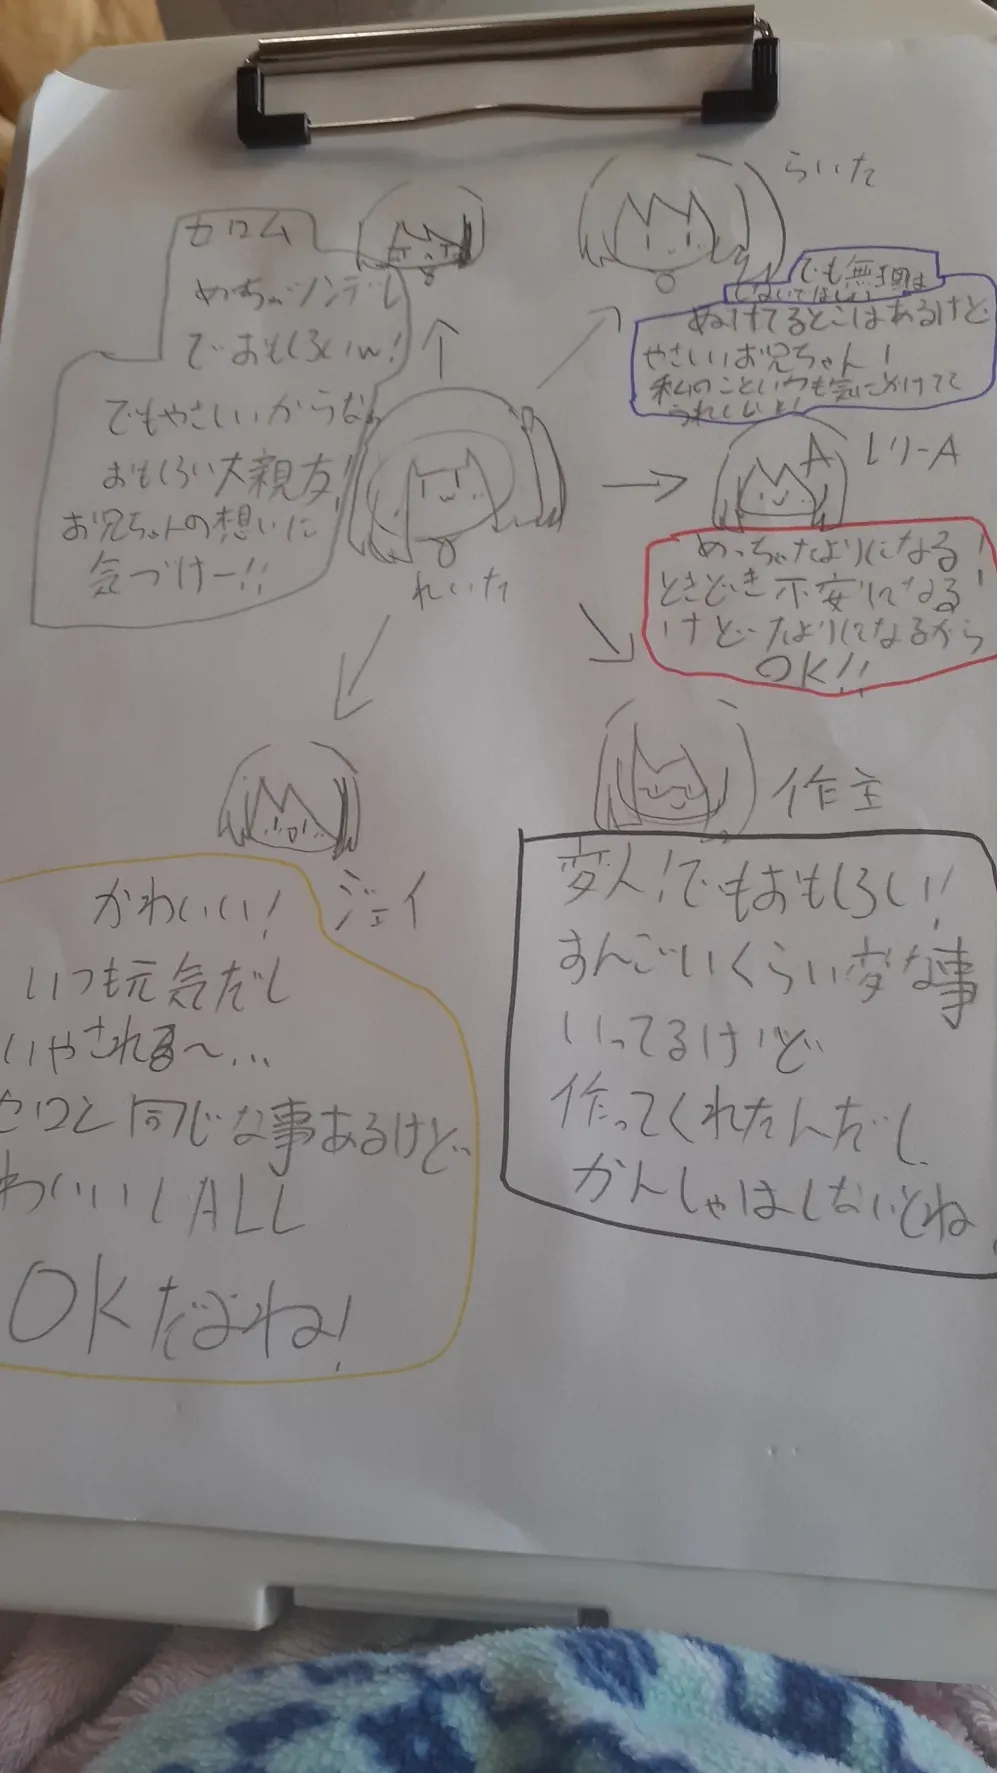 らいた
でも無理は
しないでほしい
ぬけてるとこはあるけど
やさしいお兄ちゃん!
私のこといつも気にかけてて
うれしいよ!
カロム
めっちゃツンデレ
でおもしろいw!
でもやさしいからな
おもしろい大親友!
お兄ちゃんの想いに
気づけー!!
れいた
レリーA
めっちゃたよりになる!
ときどき不安になる!
けどたよりになるから
OK!!
作主
変人!でもおもしろい!
すんごいくらい変な事
いってるけど
作ってくれたんだし
かんしゃはしないとね
ジェイ
かわいい!
いつも元気だし
いやされる〜...
と同じな事あるけど
わいいしALL
OKだよね!